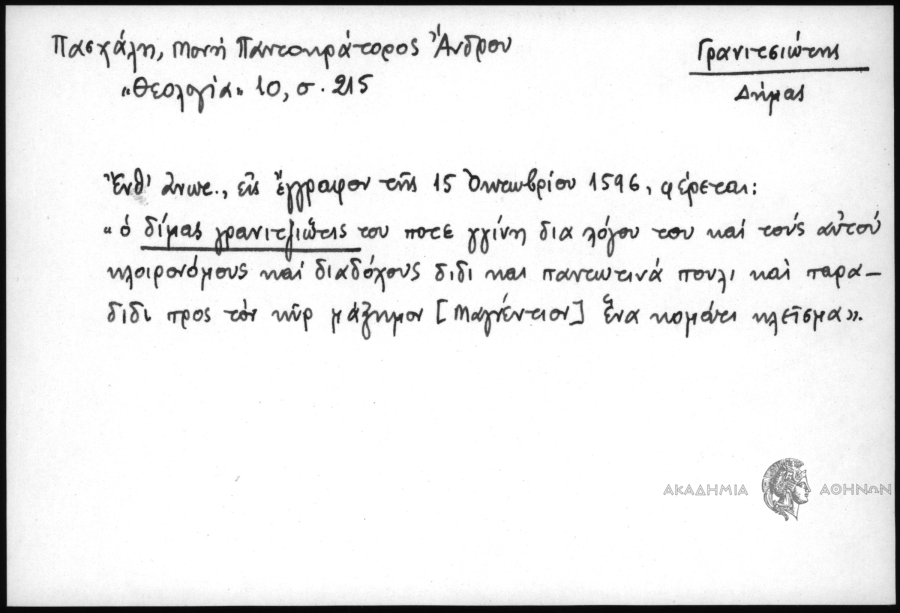 Πασχάλη, Μονή Παντοκράτορος Ἄνδρου
Γρανιτσιώτης
«Θεολογία» 10, σ. 215
Δήμας
Ἔνθ' ἀνωτ., εἰς ἔγγραφον τῆς 15 Ὀκτωβρίου 1596, φέρεται:
«ὁ δίμας γρανιτζιώτις του ποτε γγίνη δια λόγου του καί τούς αὐτού
κλοιρονόμους καί διαδόχους διδι και παντωτινά πουλι καὶ παρα-
διδι προς τὸν κῦρ μάξημον [Μαγνέντιον] ἕνα κομάτι κλεῖσμα».
ΑΚΑΔΗΜΙΑ ΑΘΗΝΩΝ